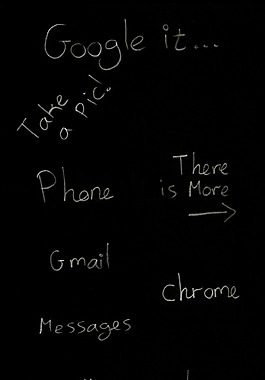 Google it...
Take
a pic!
Phone
There
is More
Gmail
chrome
Messages